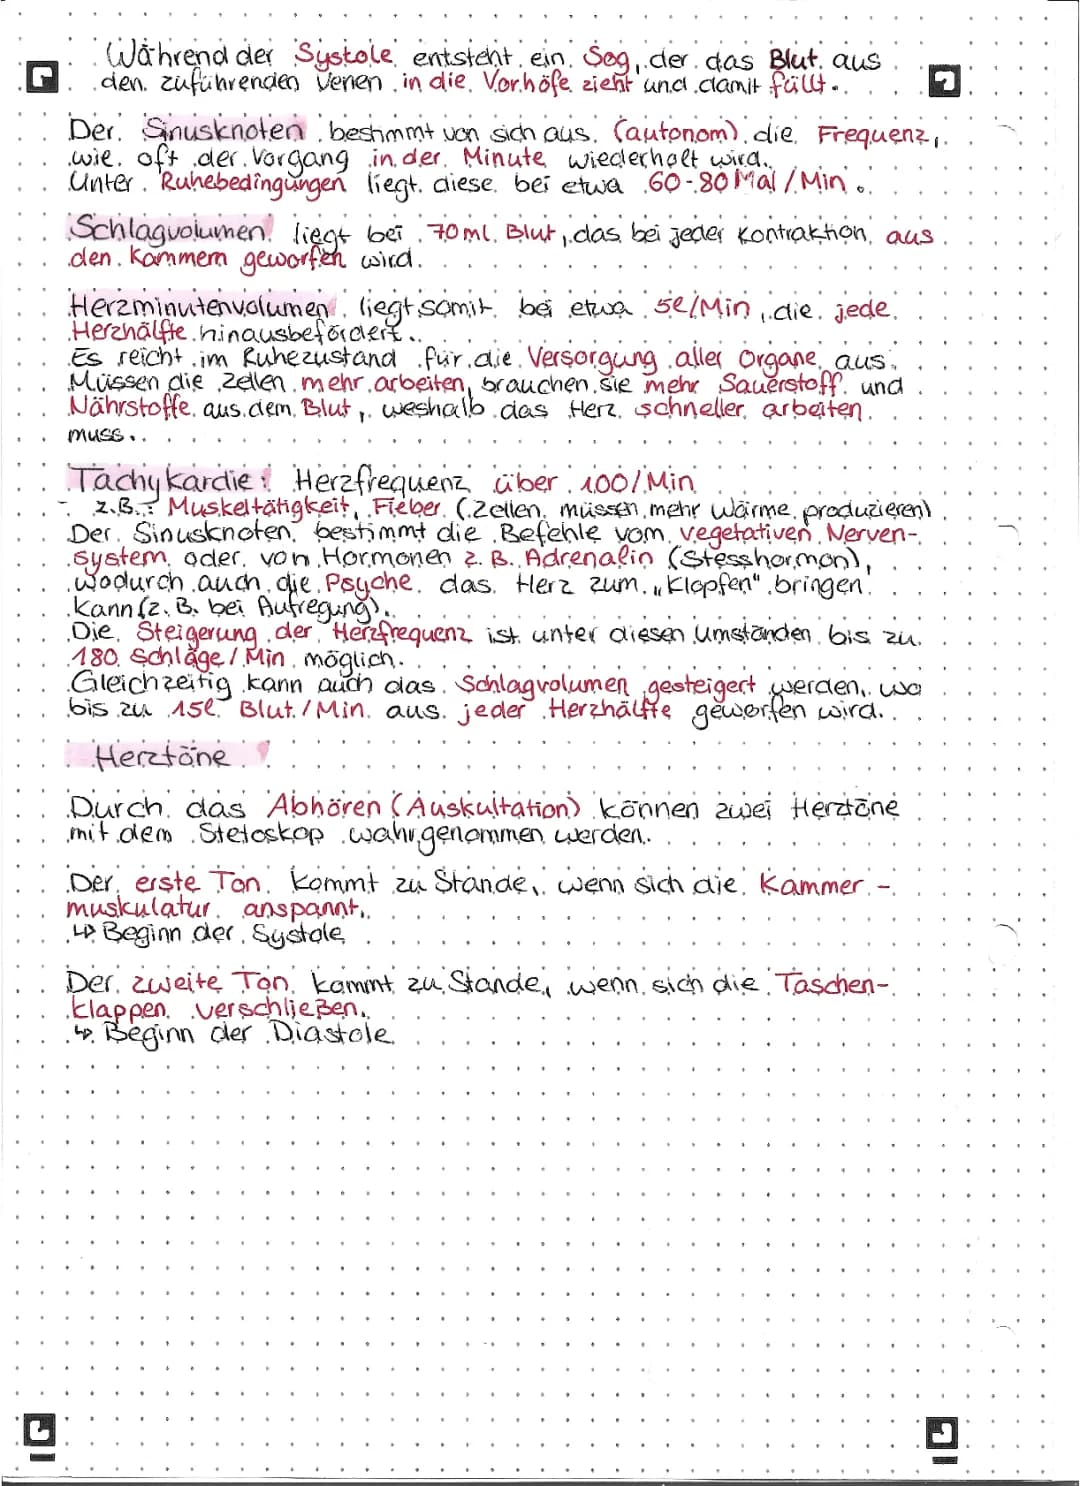 Während der Systole entsteht ein Sog, der das Blut aus
den zuführenden Venen in die Vorhöfe zieht und damit füllt.
Der Sinusknoten bestimmt von sich aus (autonom) die Frequenz,
wie oft der Vorgang in der Minute wiederholt wird.
Unter Ruhebedingungen liegt diese bei etwa 60-80 Mal / Min.
Schlagvolumen: liegt bei 70ml Blut, das bei jeder Kontraktion aus
den Kammern geworfen wird.
Herzminutenvolumen: liegt somit bei etwa 5l/Min, die jede
Herzhälfte hinausbefördert.
Es reicht im Ruhezustand für die Versorgung aller Organe aus.
Müssen die Zellen mehr arbeiten, brauchen sie mehr Sauerstoff und
Nährstoffe aus dem Blut, weshalb das Herz schneller arbeiten
muss.
Tachykardie: Herzfrequenz über 100/Min
- z.B.: Muskeltätigkeit, Fieber (Zellen müssen mehr Wärme produzieren)
Der Sinusknoten bestimmt die Befehle vom vegetativen Nerven-
system oder von Hormonen z.B. Adrenalin (Stresshormon),
wodurch auch die Psyche das Herz zum „Klopfen" bringen
kann (z.B. bei Aufregung).
Die Steigerung der Herzfrequenz ist unter diesen Umständen bis zu
180 Schläge / Min möglich.
Gleichzeitig kann auch das Schlagvolumen gesteigert werden, wo
bis zu 15l Blut / Min aus jeder Herzhälfte geworfen wird.
Herztöne
Durch das Abhören (Auskultation) können zwei Herztöne
mit dem Stetoskop wahrgenommen werden.
Der erste Ton kommt zu Stande, wenn sich die Kammer-
muskulatur anspannt.
↳ Beginn der Systole
Der zweite Ton kommt zu Stande, wenn sich die Taschen-
klappen verschließen.
↳ Beginn der Diastole